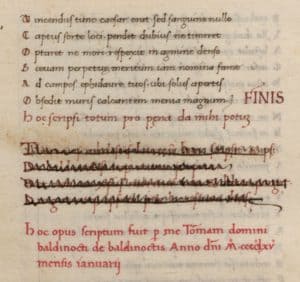 V incendus tunc caesar erat sed sanguine nullo
C aptus sorte loci pendet dubius ne timeret
O ptaret ne mori respexit in agmine denso
S ceuam perpetuę meritum iam nomina famę
A d campos ephidaure tuos. ubi solus apertis
O bsedit muris calcantem menia magnum
FINIS
hoc scripsi totum pro pena da mihi potum
hoc opus scriptum fuit p me Tomam domini
baldinocti de baldinoctis Anno dni M cccc lxv
mensis ianuarij